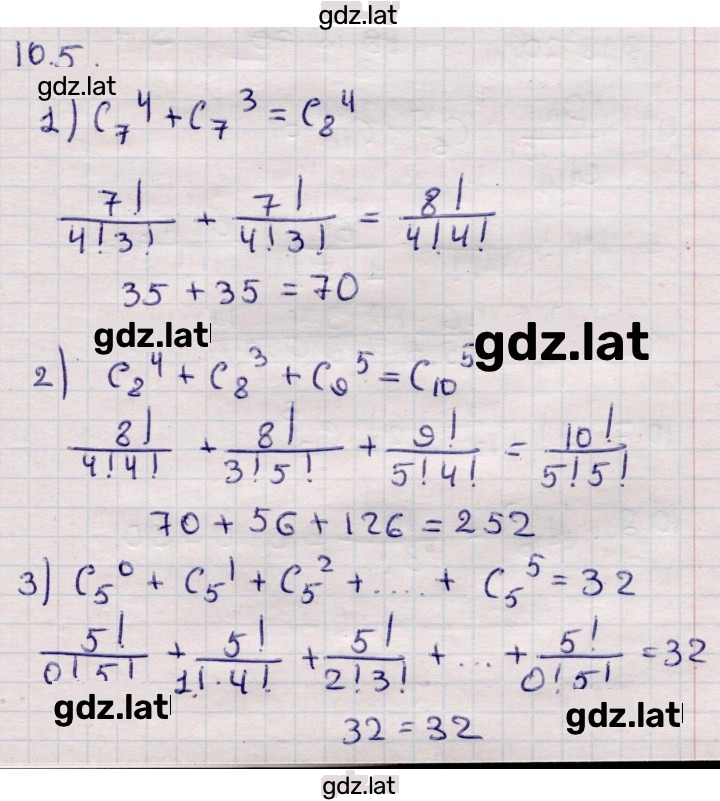 gdz.lat
10.5.
gdz.lat
1) C₇⁴ + C₇³ = C₈⁴
7!/(4!3!) + 7!/(4!3!) = 8!/(4!4!)
35 + 35 = 70
gdz.lat gdz.lat
2) C₂⁴ + C₈³ + C₉⁵ = C₁₀⁵
8!/(4!4!) + 8!/(3!5!) + 9!/(5!4!) = 10!/(5!5!)
70 + 56 + 126 = 252
3) C₅⁰ + C₅¹ + C₅² + .... + C₅⁵ = 32
5!/(0!5!) + 5!/(1!·4!) + 5!/(2!3!) + ... + 5!/(0!5!) = 32
gdz.lat gdz.lat
32 = 32
gdz.lat